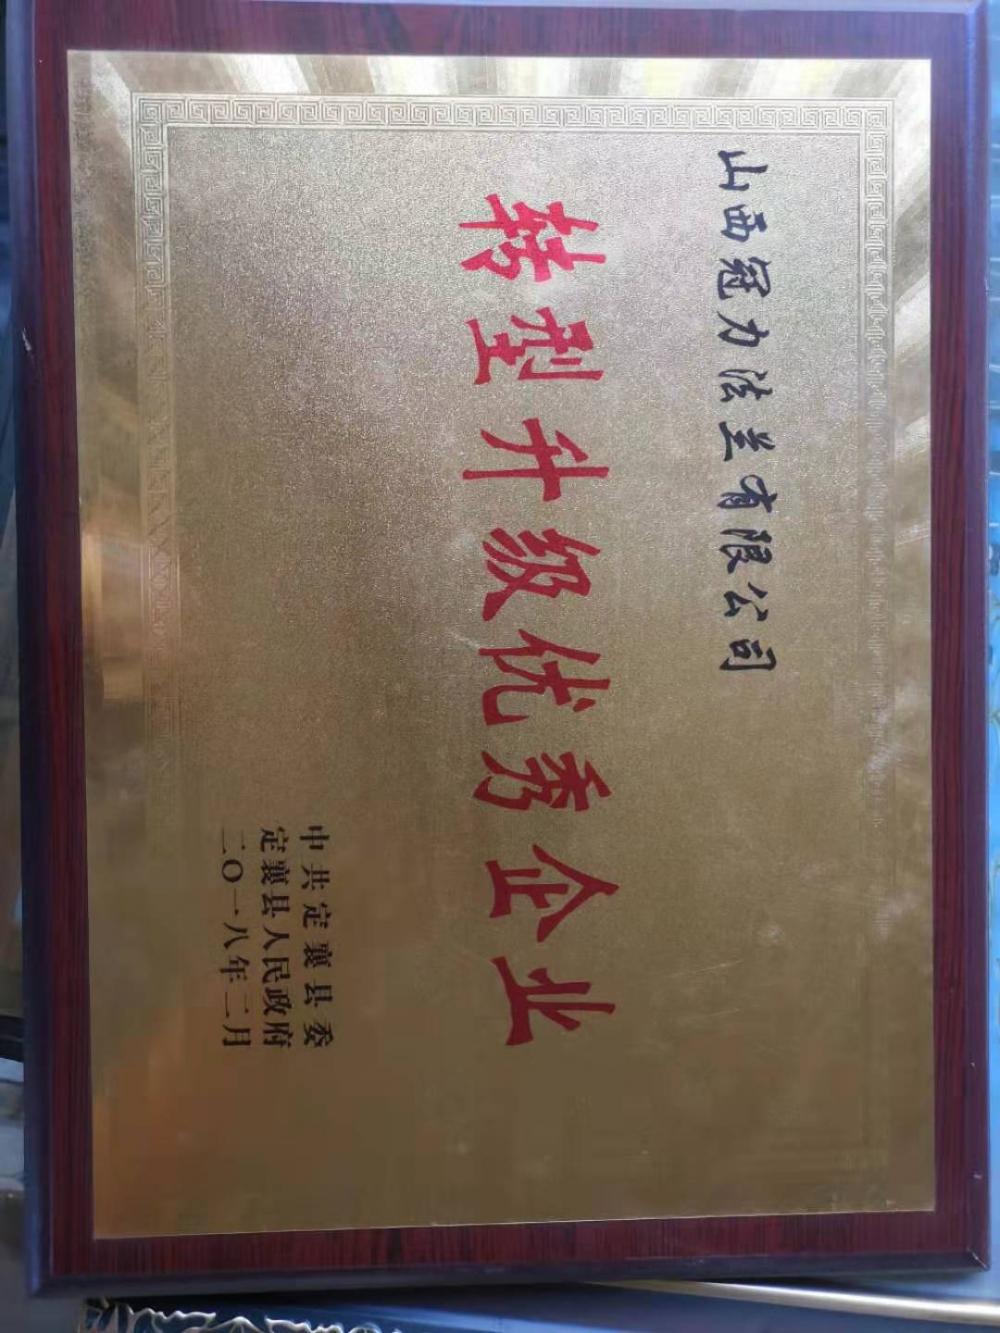 山西冠力法兰有限公司
转型升级优秀企业
中共定襄县委
定襄县人民政府
二〇一八年二月